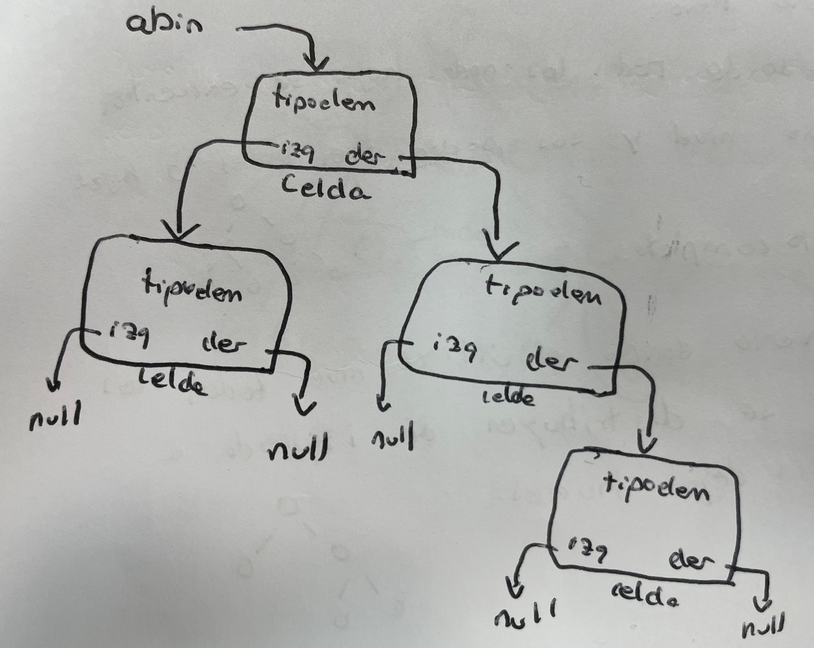 abin
tipoelem
izq der
Celda
tipoelem
izq der
celda
null
null
tipoelem
izq der
celda
null
tipoelem
izq der
celda
null
null